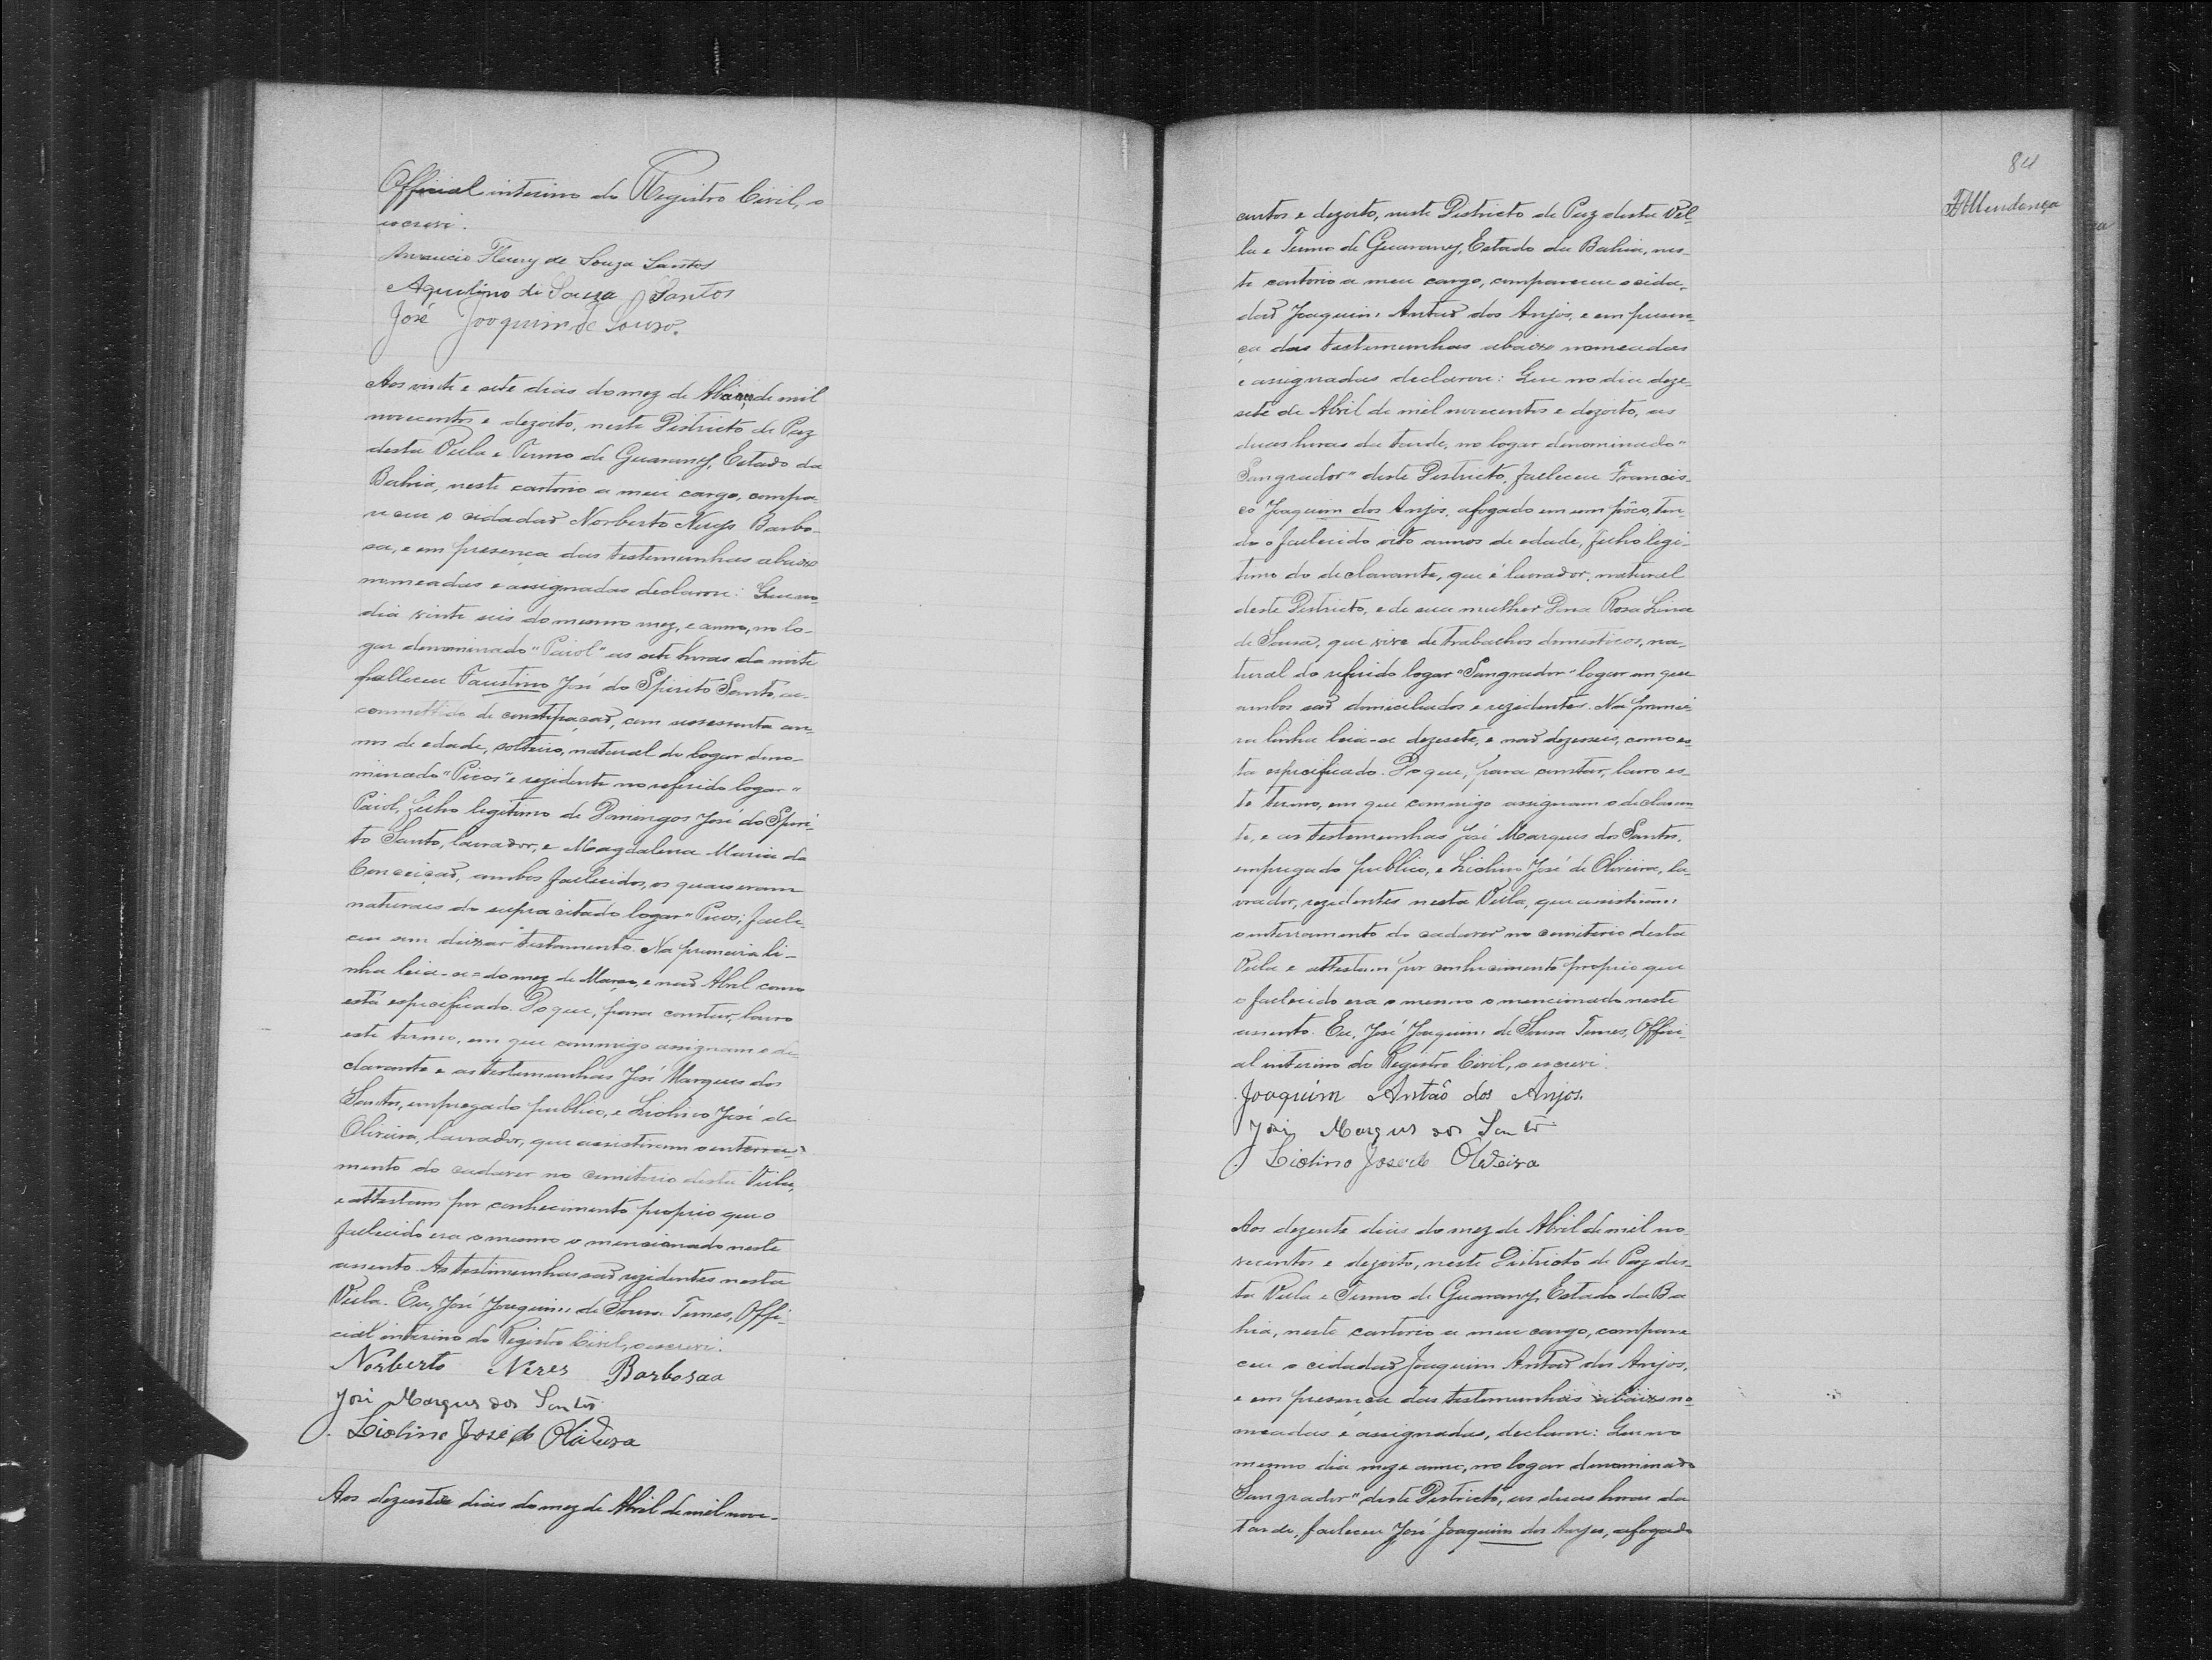 Official interino do Registro Civil, o
escrevi.
Fleury de Souza Santos
Aquilino de Souza Santos
José Joaquim de Souza.
Aos vinte e sete dias do mez de de mil
novecentos e dezoito, neste Districto de Paz
desta Villa e Termo de Guarany, Estado da
Bahia, neste cartorio a meu cargo, compa-
receu o cidadaõ Norberto Nerys Barbo-
sa, e em presença das testemunhas abaixo
nomeadas e assignadas declarou: Que no
dia vinte seis do mesmo mez, e anno, no lo-
gar denominado "Paiol" as sete horas da noite
falleceu Faustino José do Spirito Santo, ac-
commettido de constipaçaõ, com sessenta an-
nos de edade, solteiro, natural do logar deno-
minado "Picos" e rezidente no referido logar "
Paiol, filho legitimo de Domingos José do Spiri-
to Santo, lavrador, e Magdalena Maria da
Conceiçaõ, ambos fallecidos, os quaes eram
naturaes do supra citado logar "Picos; falle-
ceu sem deixar testamento. Na primeira li-
nha leia-se = do mez de Março, e naõ Abril como
está especificado. Do que, para constar, lavro
este termo, em que commigo assignam o de-
clarante e as testemunhas José Marques dos
Santos, empregado publico, e Liolino José de
Oliveira, lavrador, que assistiram o enterra-
mento do cadaver no cemiterio desta Villa,
e attestam por conhecimento proprio que o
fallecido era o mesmo o mencionado neste
assento. As testimunhas saõ rezidentes nesta
Villa. Eu, José Joaquim de Sousa Tunes, Offi-
cial interino do Registro Civil, o escrevi.
Norberto Neres Barbosaa
José Marques dos Santos
Liolino José de Oliveira
Aos dezesete dias do mez de Abril de mil nove-
84
centos e dezoito, neste Districto de Paz desta Vil-
la e Termo de Guarany, Estado da Bahia, nes-
te cartorio a meu cargo, compareceu o cida-
daõ Joaquim Antaõ dos Anjos, e em presen-
ça das testemunhas abaixo nomeadas
e assignadas declarou: Que no dia deze-
sete de Abril de mil novecentos e dezoito, as
duas horas da tarde, no logar denominado "
Sangrador" deste Districto, falleceu Francis-
co Joaquim dos Anjos, afogado em um pôço, ten-
do o fallecido oito annos de edade, filho legi-
timo do declarante, que é lavrador, natural
deste Districto, e de sua mulher Dona Rosa Lina
de Sousa, que vive de trabalhos domesticos, na-
tural do referido logar "Sangrador" logar em que
ambos saõ domiciliados e rezidentes. Na primei-
ra linha leia-se dezesete, e naõ dezesseis, como es-
ta especificado. Do que, para constar, lavro es-
te termo, em que commigo assignam o declaran-
te, e as testemunhas José Marques dos Santos,
empregado publico, e Liolino José de Oliveira, la-
vrador, rezidentes nesta Villa, que assistiram
o enterramento do cadaver no cemiterio desta
Villa e attestam por conhecimento proprio que
o fallecido era o mesmo o mencionado neste
assento. Eu, José Joaquim de Sousa Tunes, Offici-
al interino do Registro Civil, o escrevi.
Joaquim Antaõ dos Anjos.
José Marques dos Santos
Liolino José de Oliveira
Aos dezesete dias do mez de Abril de mil no-
vecentos e dezoito, neste Districto de Paz des-
ta Villa e Termo de Guarany, Estado da Ba
hia, neste cartorio a meu cargo, compare
ceu o cidadaõ Joaquim Antaõ dos Anjos,
e em presença das testemunhas abaixo no-
meadas e assignadas, declarou: Que no
mesmo dia mez e anno, no logar denominado
Sangrador" deste Districto, as duas horas da
tarde, falleceu José Joaquim dos Anjos, afogado